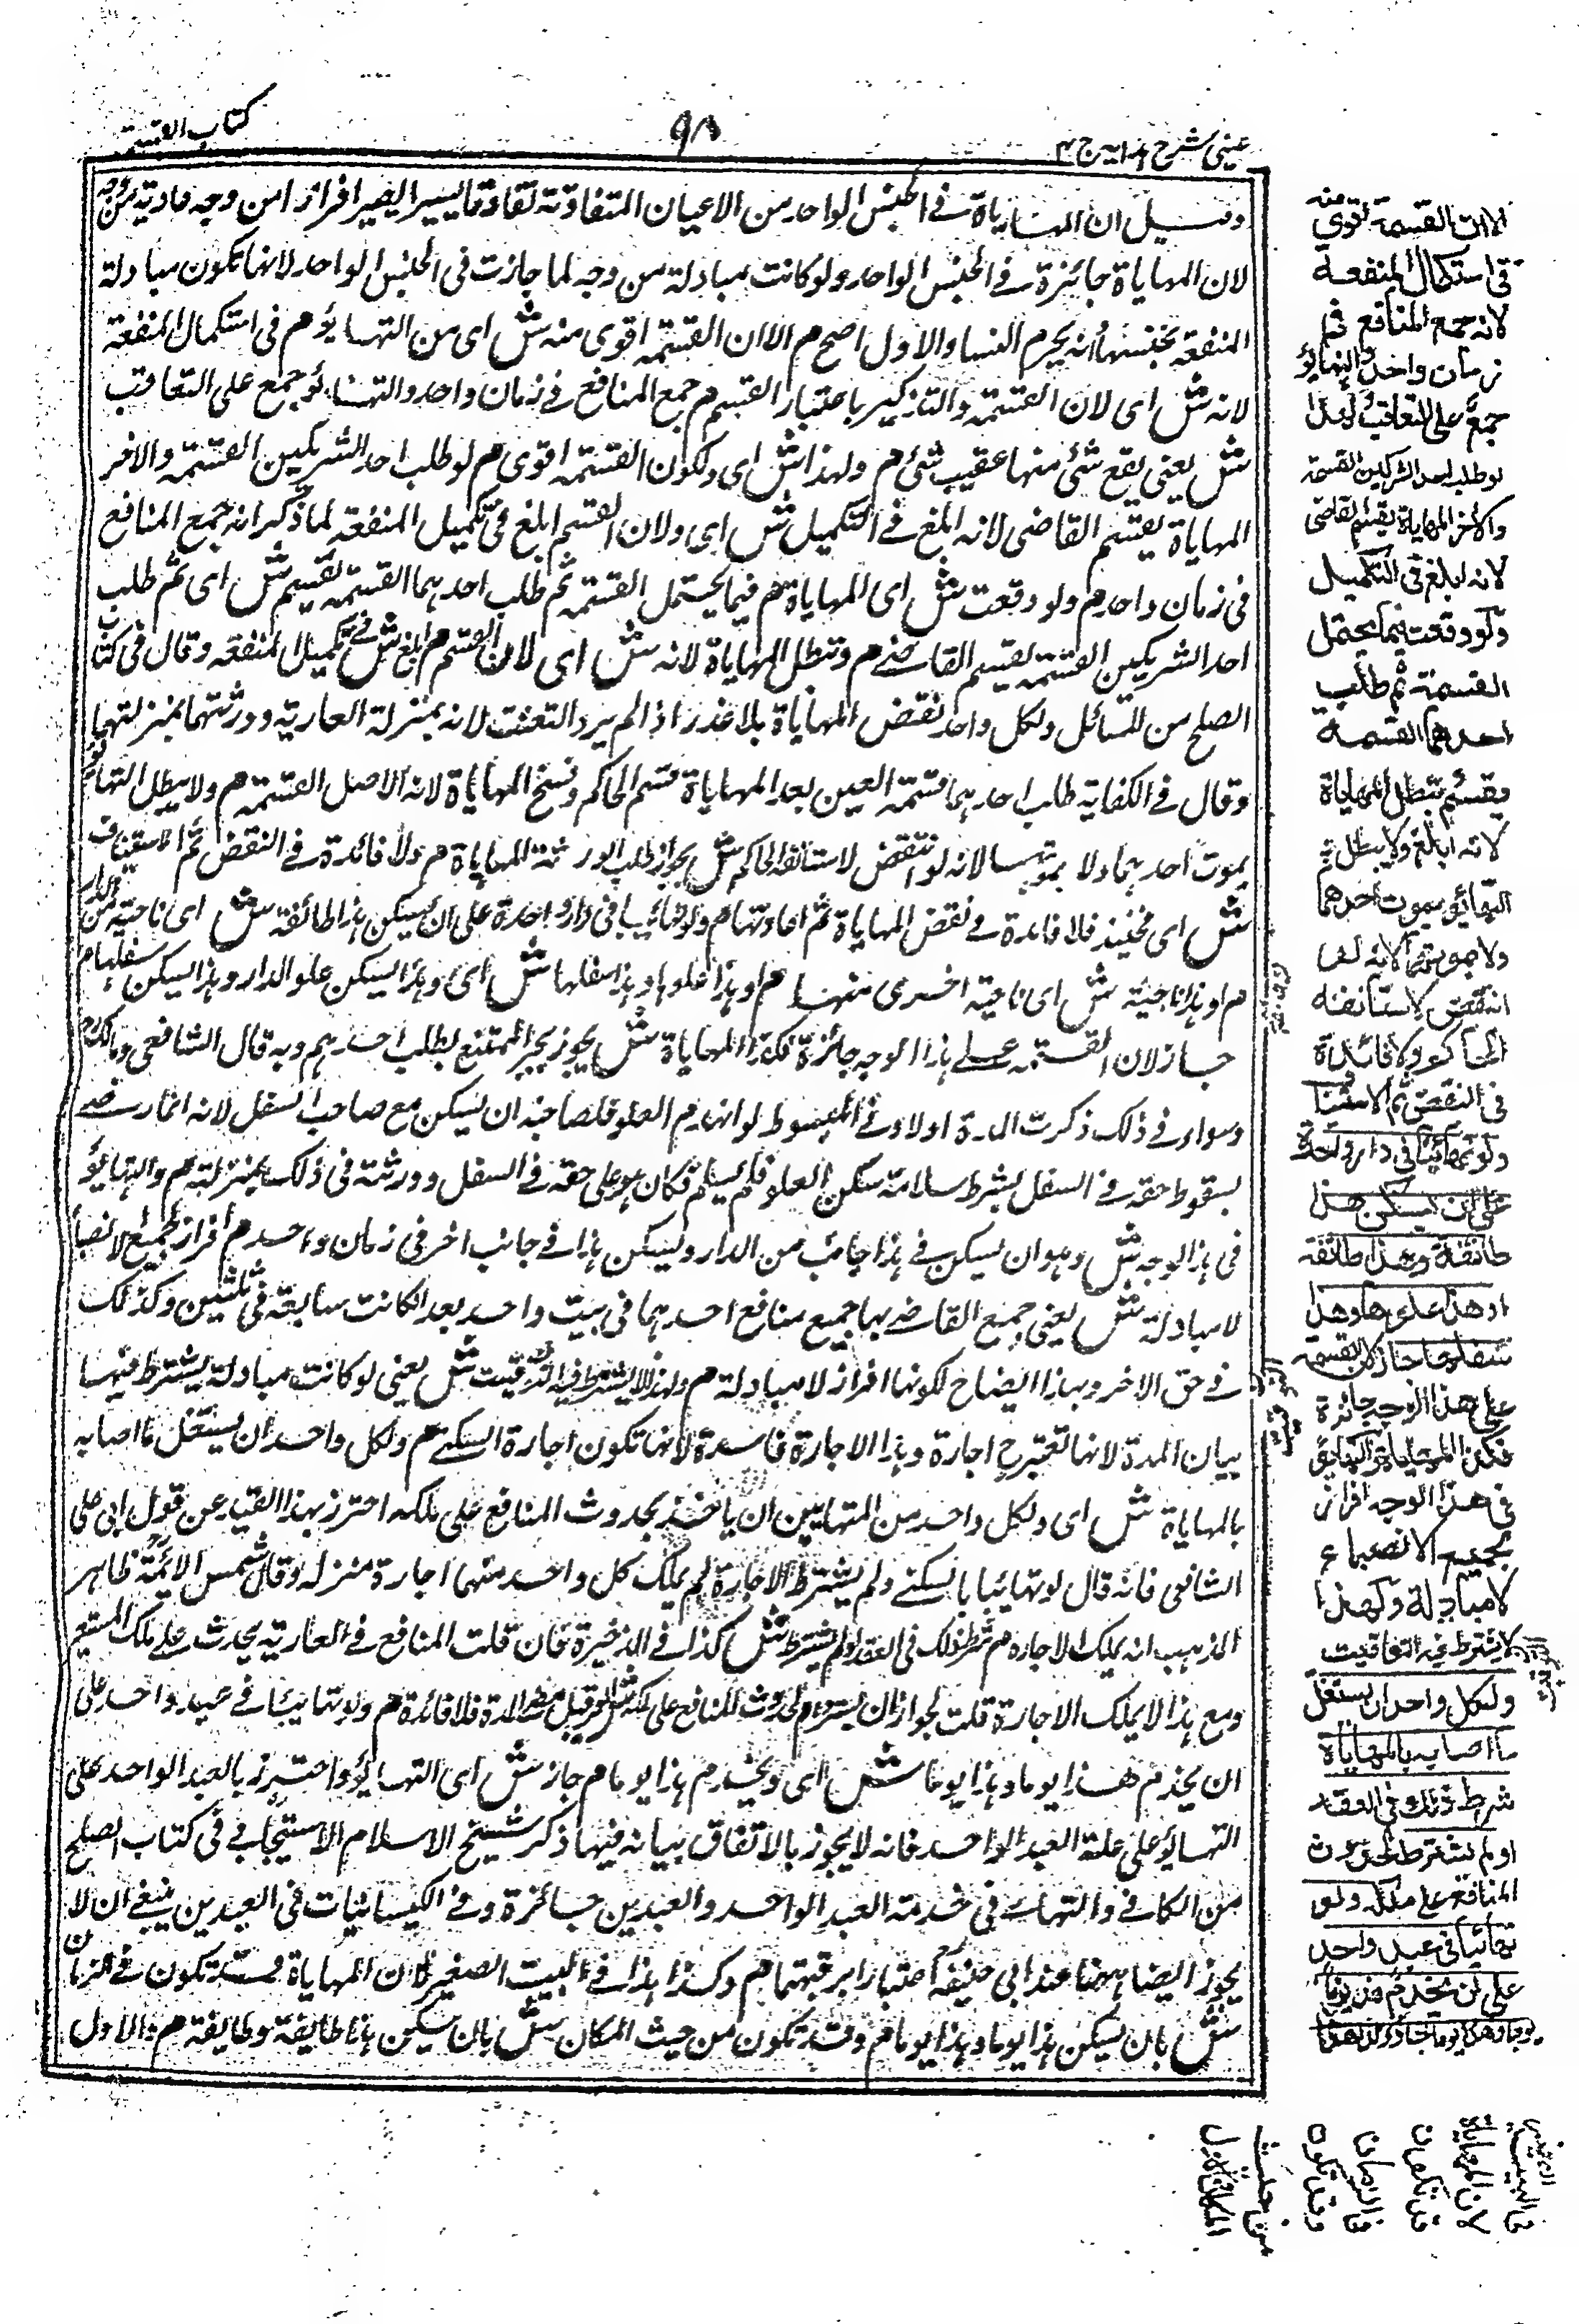 عینی شرح هدایه ج ۴
۹۸
کتاب القسمة
وقيل ان المهاياة في الجنس الواحد من الاعيان المتفاوتة تفاوتا يسيرا يصير افرازا من وجه عادية من وجه
لان المهاياة جائزة في الجنس الواحد ولو كانت مبادلة من وجه لما جازت في الجنس الواحد لانها تكون مبادلة
المنفعة بجنسها وانه يحرم النسا والاول اصح م الا ان القسمة اقوى منه ش اى من التهايؤ م في استكمال المنفعة
لانه ش اى لان القسمة والتذكير باعتبار القسم م جمع المنافع في زمان واحد والتهايؤ جمع على التعاقب
ش يعنى يقع شئ منها عقيب شئ م ولهذا ش اى ولكون القسمة اقوى م لو طلب احد الشريكين القسمة والاخر
المهاياة يقسم القاضى لانه ابلغ في التكميل ش اى ولان القسم ابلغ في تكميل المنفعة لما ذكر انه جمع المنافع
في زمان واحد م ولو وقعت ش اى المهاياة م فيما يحتمل القسمة ثم طلب احدهما القسمة تقسيم ش اى ثم طلب
احد الشريكين القسمة يقسم القاضى م وتبطل المهاياة لانه ش اى لان القسم م ابلغ ش في تكميل المنفعة وقال في كتاب
الصلح من المسائل ولكل واحد نقض المهاياة بلا عذر اذا لم يرد التعنت لانه بمنزلة العارية وورثتهما بمنزلتهما
وقال في الكفاية طلب احدهما قسمة العين بعد المهاياة قسم الحاكم وفسخ المهاياة لانه الاصل القسمة م ولا يبطل التهايؤ
بموت احدهما ولا بموتهما لانه لو انتقض لاستانفه الحاكم ش يجواز طلب الورثة المهاياة م ولا فائدة في النقض ثم الاستيناف
ش اى فحينئذ فلا فائدة في نقض المهاياة ثم اعادتها م ولو تهائيا في دار واحدة على ان يسكن هذا طائفة ش اى ناحية من الدار
م وهذا ناحية ش اى ناحية اخرى منها م او هذا علوها وهذا سفلها ش اى وهذا يسكن علو الدار وهذا يسكن سفلها م
جاز لان القسمة على هذا الوجه جائزة فكذا المهاياة ش يجوز يجبر الممتنع بطلب احدهم وبه قال الشافعى ومالك
وسواء في ذلك ذكرت المدة اولا وفي المبسوط لو انهدم العلو فلصاحبه ان يسكن مع صاحب السفل لانه انما رضى
بسقوط حقه في السفل بشرط سلامة سكن العلو فلم يسلم فكان هو على حقه في السفل وورثته في ذلك بمنزلته م والتهايؤ
في هذا الوجه ش وهو ان يسكن في هذا جانب من الدار ويسكن هذا في جانب اخر في زمان واحد م افراز لجميع الانصباء
لا مبادلة ش يعنى جميع القاضى بها جميع منافع احدهما في بيت واحد بعد الكانت سابعة في بيتين وكذلك
في حق الاخر وبهذا ايضاح لكونها افراز لا مبادلة م ولهذا لا يشترط فيه التوقيت ش يعنى لو كانت مبادلة يشترط فيها
بيان المدة لانها تعتبر ح اجارة وهذا الاجارة فاسدة لانها تكون اجارة السكنى م ولكل واحد ان يستغل ما اصابه
بالمهاياة ش اى ولكل واحد من المتهايين ان ياخذ بحدوث المنافع على ملكه احترز بهذا القيد عن قول ابى على
الشافعى فانه قال لو تهائيا بالسكنى ولم يشترط الاجارة لم يملك كل واحد منهما اجارة منزله وقال شمس الائمة ظاهر
المذهب انه يملك الاجاره م شرط ذلك في العقد او لم يشترط ش كذا في الذخيرة فان قلت المنافع في العارية يحدث على ملك المستعير
ومع هذا لا يملك الاجارة قلت لجواز ان يسترد م لحدوث المنافع على ملكه ش قبل مضى المدة فلا فائدة م ولو تهائيا في عبد واحد على
ان يخدم هذا يوما وهذا يوما ش اى ويخدم هذا يوما م جاز ش اى التهايؤ واحترز بالعبد الواحد على
التهايؤ على غلة العبد الواحد فانه لا يجوز بالاتفاق بيانه فيها ذكر شيخ الاسلام الاسبيجابي في كتاب الصلح
من الكافى والتهائى في خدمة العبد الواحد والعبدين جائزة وفي الكيسانيات في العبدين ينبغى ان لا
يجوز ايضا ههنا عند ابى حنيفة اعتبارا برقبتهما م وكذا هذا في البيت الصغير لان المهاياة قد تكون في الزمان
ش بان يسكن هذا يوما وهذا يوما م وقد تكون من حيث المكان ش بان يسكن هذا طايفة وطايفة م والاول
الا ان القسمة اقوى منه
في استكمال المنفعة
لانه جمع المنافع في
زمان واحد والتهايؤ
جمع على التعاقب ولهذا
لو طلب احد الشريكين القسمة
والاخر المهاياة يقسم القاضى
لانه ابلغ في التكميل
ولو وقعت فيما يحتمل
القسمة ثم طلب
احدهما القسمة
يقسم وتبطل المهاياة
لانه ابلغ ولا يبطل
التهايؤ بموت احدهما
ولا بموتهما لانه لو
انتقض لاستأنفه
الحاكم ولا فائدة
في النقض ثم الاستيناف
ولو تهائيا في دار واحدة
على ان يسكن هذا
طائفة وهذا طائفة
او هذا علوها وهذا
سفلها جاز لان القسمة
على هذا الوجه جائزة
فكذا المهاياة والتهايؤ
في هذا الوجه افراز
لجميع الانصباء
لا مبادلة ولهذا
لا يشترط فيه التوقيت
ولكل واحد ان يستغل
ما اصابه بالمهاياة
شرط ذلك في العقد
او لم يشترط لحدوث
المنافع على ملكه ولو
تهائيا في عبد واحد
على ان يخدم هذا يوما
وهذا يوما جاز وكذا هذا
في البيت الصغير
لان المهاياة
قد تكون
في الزمان
وقد تكون
من حيث
المكان والاول